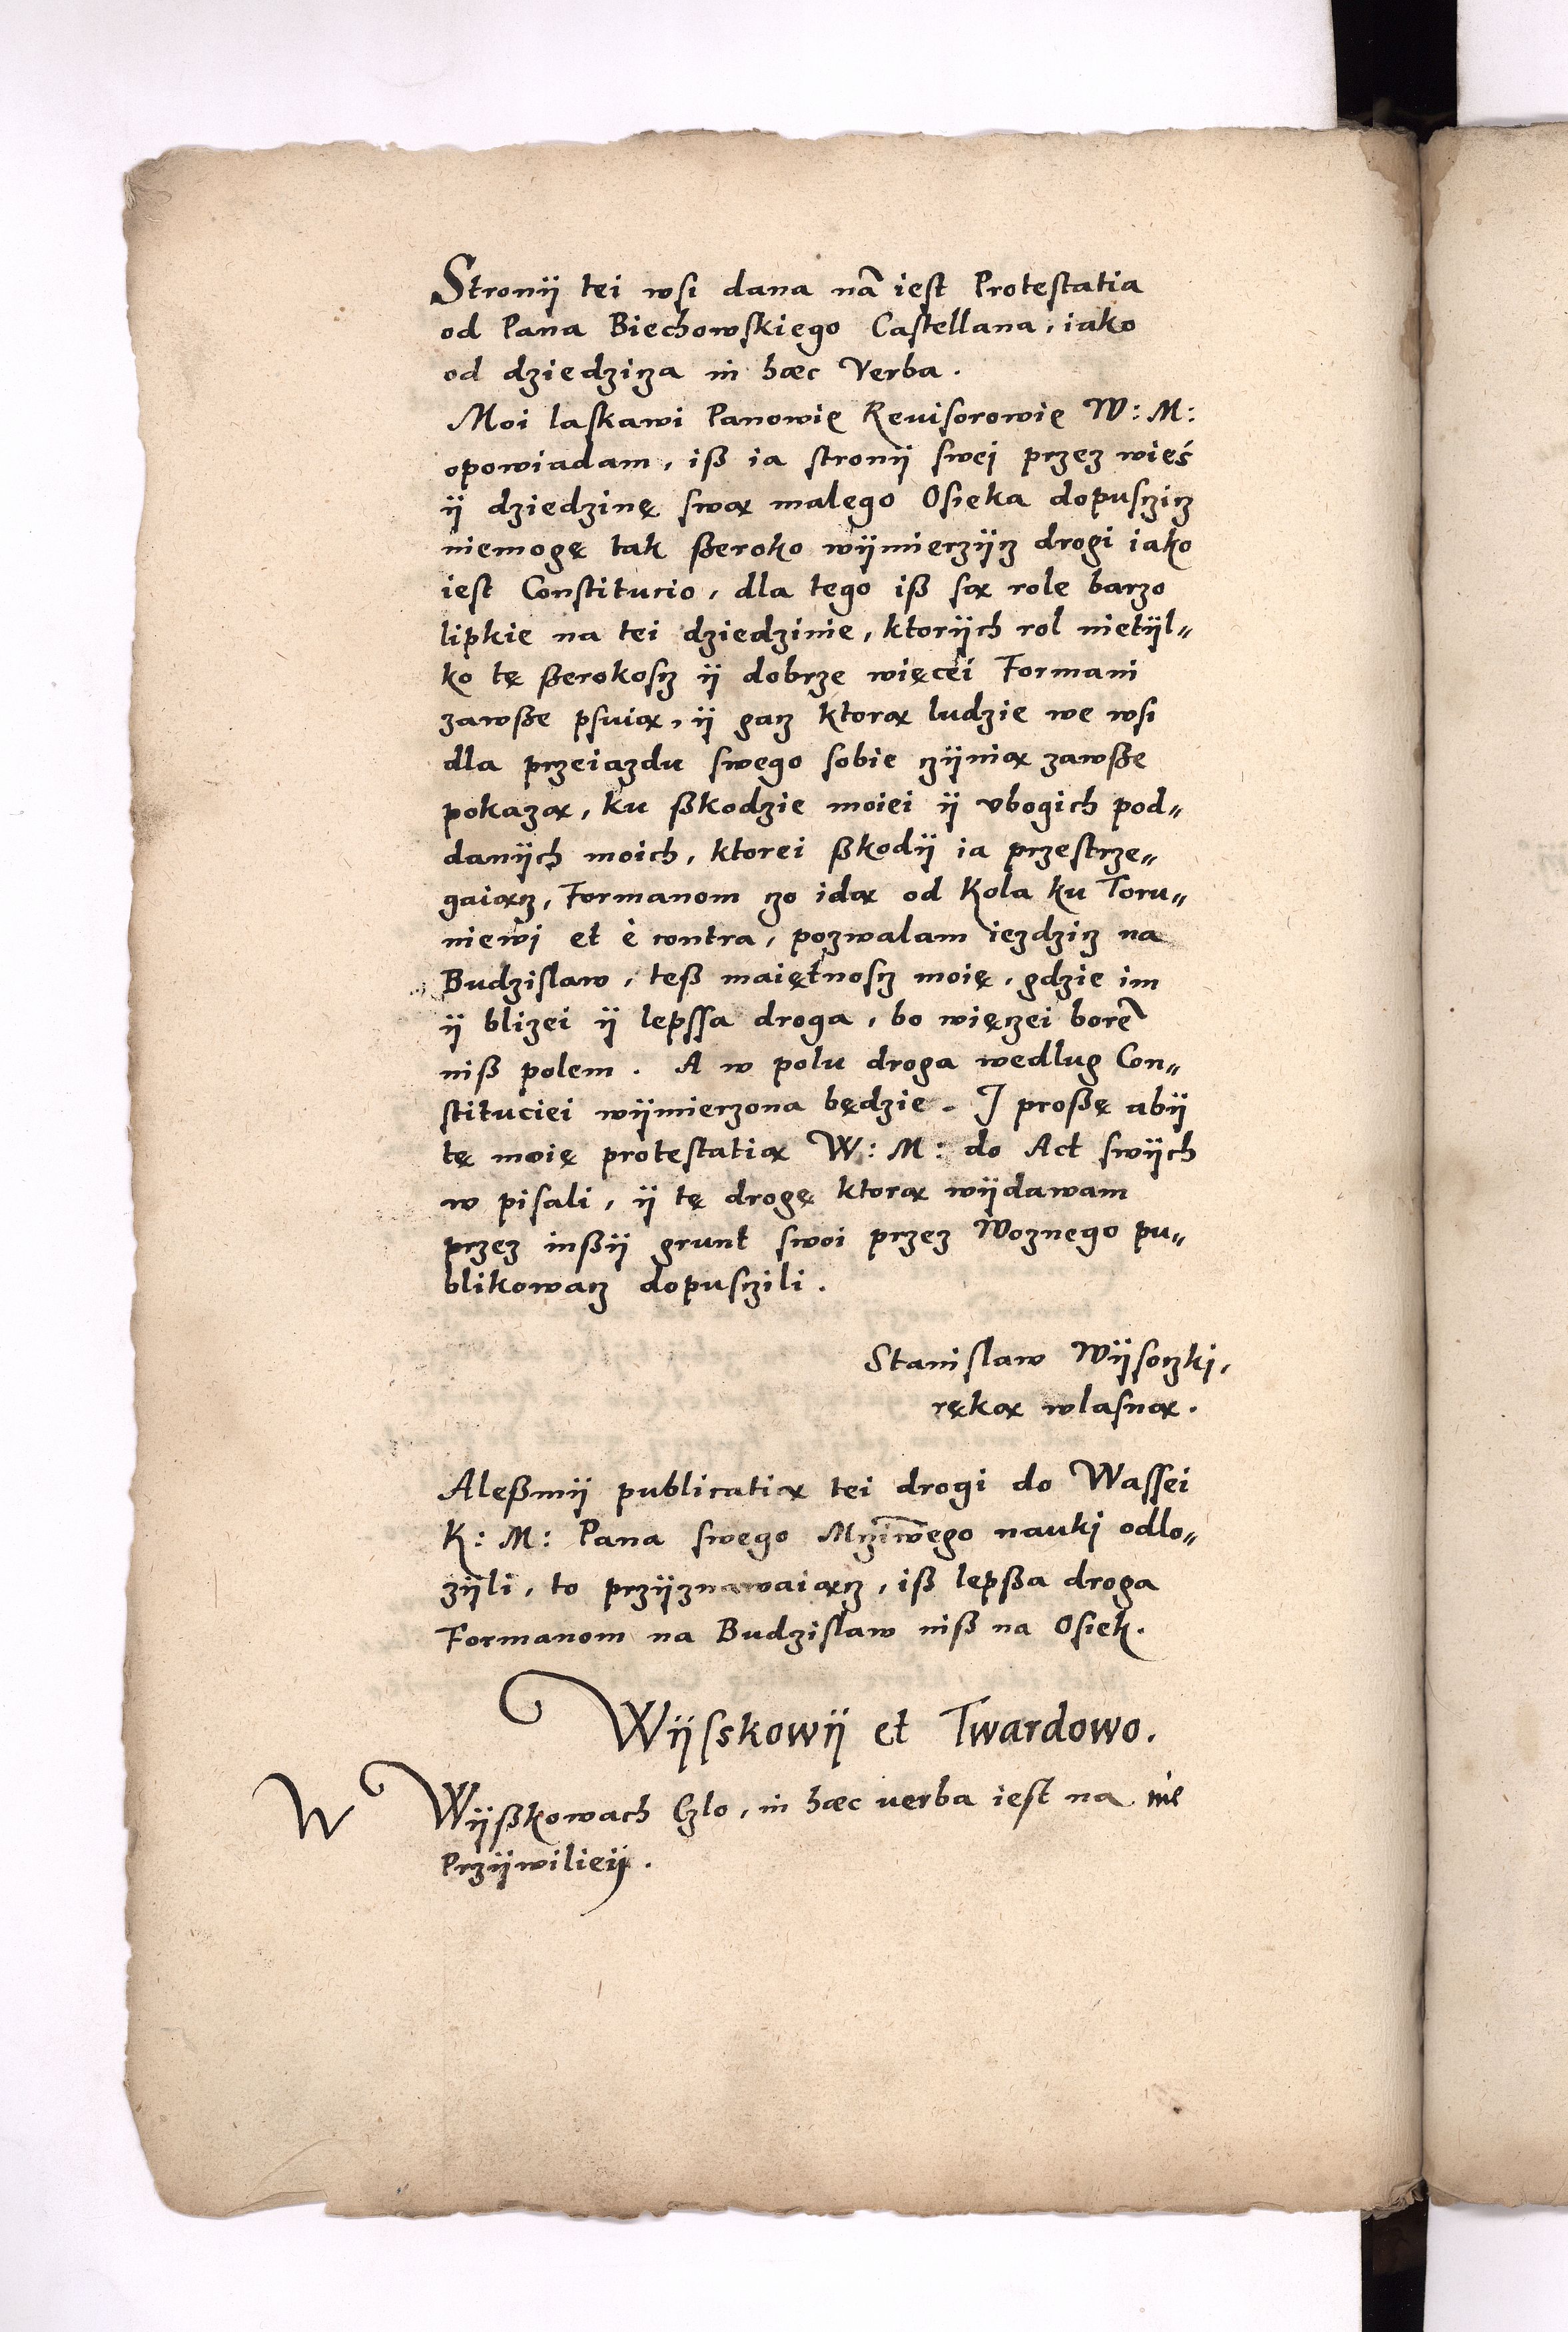 Stronÿ tei wsi dana nã iest Protestatia
od Pana Biechowskiego Castellana, iako
od dziedzicza in hæc Verba.
Moi laskawi Panowię Reuisorowię W: M:
opowiadam, iß ia stronÿ swei przez wieś
ÿ dziedzinę swą malego Osieka dopusczicz
niemogę tak ßeroko wÿmierzÿcz drogi iako
iest Constitucio, dla tego iß są role barzo
lipkie na tei dziedzinie, ktorÿch rol nietÿl„
ko tę ßerokoscz ÿ dobrze więcei Formani
zawße psuią, ÿ gacz ktorą ludzie we wsi
dla przeiazdu swego sobie czÿnią zawße
pokazą, ku ßkodzie moiei ÿ vbogich pod„
danÿch moich, ktorei ßkodÿ ia przestrze„
gaiącz, Formanom czo idą od Kola ku Toru„
niewi et è contra, pozwalam iezdzicz na
Budzislaw, teß maiętnoscz moię, gdzie im
ÿ blizei ÿ lepssa droga, bo więczei borẽ
niß polem. A w polu droga wedlug Con„
stituciei wÿmierzona będzie. I proßę abÿ
tę moię protestatią W: M: do Act swÿch
w pisali, ÿ tę drogę ktorą wÿdawam
przez inßÿ grunt swoi przez Woznego pu„
blikowacz dopusczili.
Stanislaw Wÿsoczki,
ręką wlasną.
Aleßmÿ publicatią tei drogi do Wassei
K: M: Pana swego Mcziw̃ego nauki odlo„
zÿli, to przÿznawaiącz, iß lepßa droga
Formanom na Budzislaw niß na Osiek.
Wÿsskowÿ et Twardowo.
W Wÿßkowach Czlo, in hæc uerba iest na nie
Przÿwilieÿ.